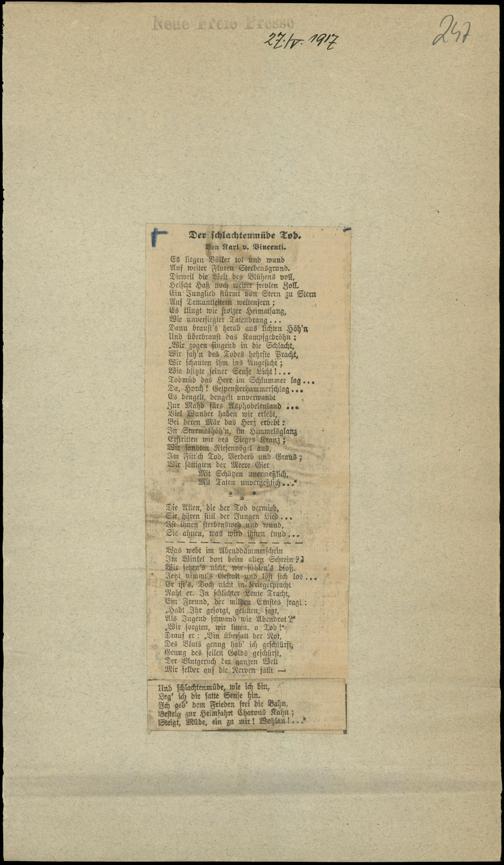 Neue Freie Presse
27. IV. 1917
247
Der schlachtenmüde Tod.
Von Karl v. Vincenti.
Es liegen Völker tot und wund
Auf weiter Fluren Sterbensgrund.
Dieweil die Welt des Blühens voll,
Heischt Haß noch weiter frevlen Zoll.
Ein Junglied stürmt von Stern zu Stern
Auf Demantleitern weltenfern;
Es klingt wie stolzer Heimatsang,
Wie unversiegter Tatendrang...
Dann braust's herab aus lichten Höh'n
Und überbraust das Kampfgedröhn:
„Wir zogen singend in die Schlacht,
Wir sah'n des Todes hehrste Pracht,
Wir schauten ihm ins Angesicht;
Wie blitzte seiner Sense Licht!...
Todmüd das Heer im Schlummer lag...
Da, Horch! Gespensterhammerschlag...
Es dengelt, dengelt unverwandt
Zur Mahd fürs Asphodelenland...
Viel Wunder haben wir erlebt,
Bei deren Mär das Herz erbebt:
In Sturmeshöh'n, im Himmelsglanz
Erstritten wir des Sieges Kranz;
Wir sandten Riesenvögel aus,
Im Fittich Tod, Verderb und Graus;
Wir sättigten der Meere Gier
Mit Schätzen unermeßlich,
Mit Taten unvergeßlich..."
* * *
Die Alten, die der Tod vermied,
Sie hören still der Jungen Lied...
Ist ihnen sterbensweh und wund,
Sie ahnen, was wird ihnen kund...
Was webt im Abenddämmerschein
Im Winkel dort beim alten Schrein?
Wir sehen's nicht, wir fühlen's bloß.
Jetzt nimmt's Gestalt und löst sich los...
Er ist's. Doch nicht in Kriegerpracht
Naht er. In schlichter Leute Tracht,
Ein Freund, der milden Ernstes fragt:
„Habt Ihr gesorgt, gelitten, sagt,
Als Jugend schwand wie Abendrot?"
„Wir sorgten, wir litten, o Tod!"
Drauf er: „Bin übersatt der Not,
Des Bluts genug hab' ich geschlürft,
Genug des feilen Golds geschürft,
Der Blutgeruch der ganzen Welt
Mir selber auf die Nerven fällt —
Und schlachtenmüde, wie ich bin,
Leg' ich die satte Sense hin.
Ich geb' dem Frieden frei die Bahn,
Besteig zur Heimfahrt Charons Kahn;
Steigt, Müde, ein zu mir! Wohlan!..."